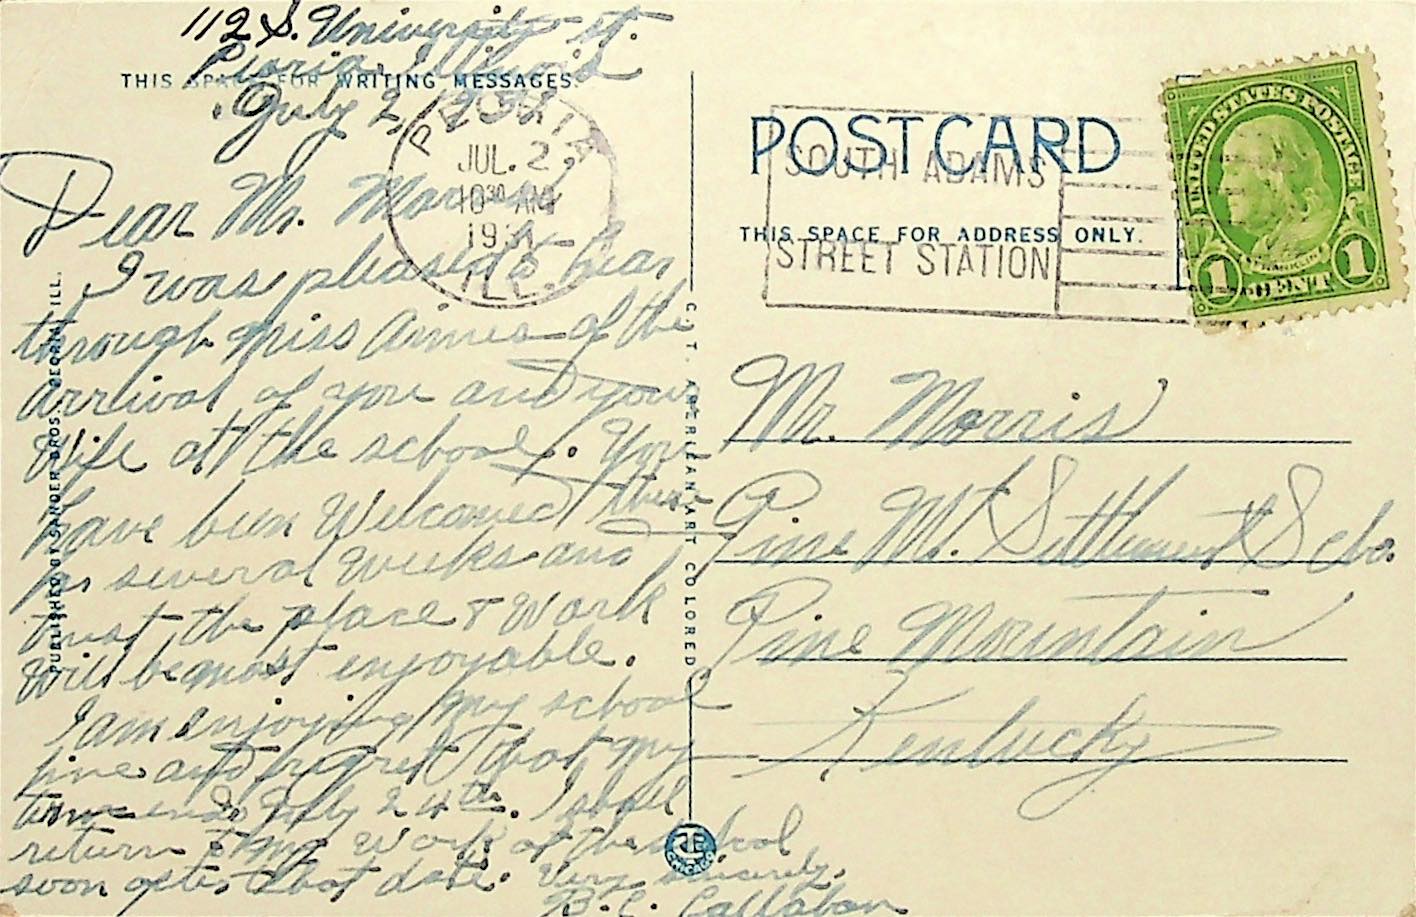 112 S. University St.
Peoria, Illinois
July 2, 1931
THIS SPACE FOR WRITING MESSAGES.
Dear Mr. Morris,
I was pleased to hear
through Miss Aimes of the
arrival of you and your
wife at the school. You
have been welcomed there
for several weeks and
trust the place & work
will be most enjoyable.
I am enjoying my school
fine and regret that my
time ends July 24th. I shall
return to my work at the school
soon after that date. Very sincerely,
B. C. Callahan
PUBLISHED BY SANDER BROS. PEORIA, ILL.
C. T. AMERICAN ART COLORED
CHICAGO
PEORIA
JUL. 2
10 30 AM
1931
ILL.
POST CARD
SOUTH ADAMS
STREET STATION
THIS SPACE FOR ADDRESS ONLY.
UNITED STATES POSTAGE
FRANKLIN
1 CENT 1
Mr. Morris
Pine Mt. Settlement Scho.
Pine Mountain
Kentucky